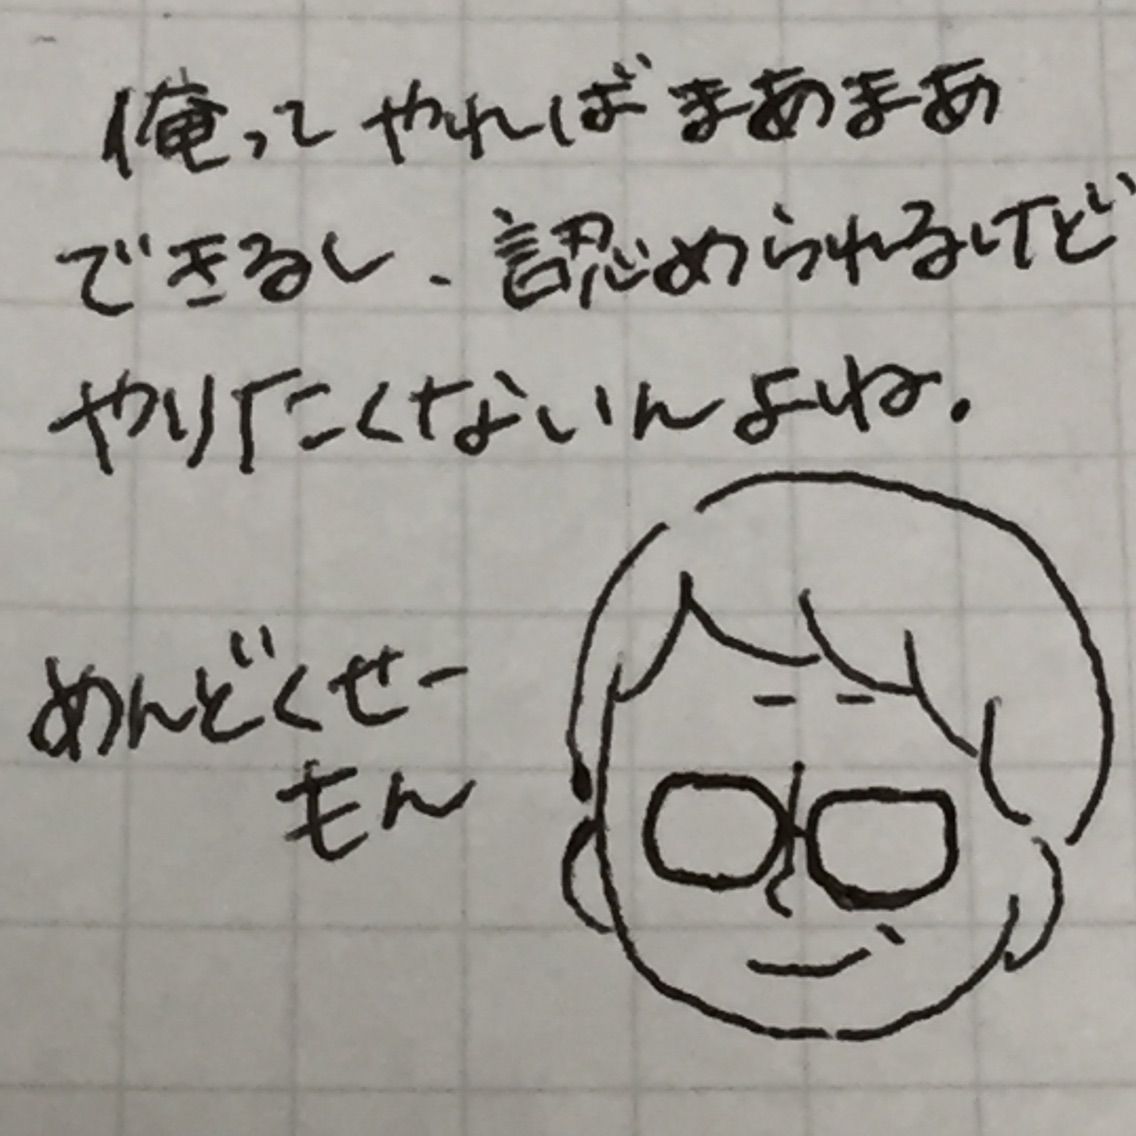 俺ってやればまあまあ
できるし、認められるけど
やりたくないんよね。
めんどくせー
もん